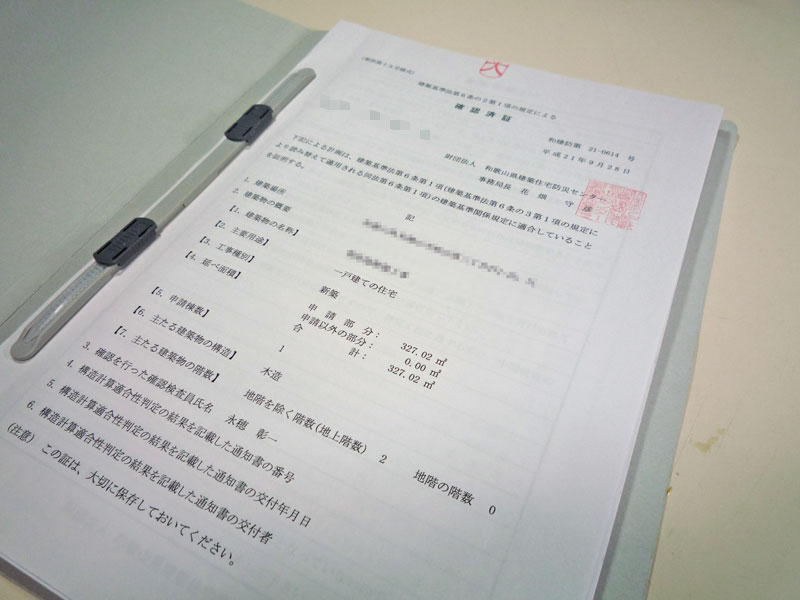 建築基準法第6条の2第1項の規定による
確認済証
和建防第 21-0614 号
平成21年9月28日
財団法人 和歌山県建築住宅防災センター
事務局長 花畑 守
下記による計画は、建築基準法第6条第1項(建築基準法第6条の3第1項の規定に
より読み替えて適用される同法第6条第1項)の建築基準関係規定に適合していること
を証明する。
記
1. 建築場所
2. 建築物の概要
【1. 建築物の名称】
【2. 主要用途】 一戸建ての住宅
【3. 工事種別】 新築
【4. 延べ面積】 申請部分: 327.02 ㎡
申請以外の部分: 0.00 ㎡
合計: 327.02 ㎡
【5. 申請棟数】 1
【6. 主たる建築物の構造】 木造
【7. 主たる建築物の階数】 地階を除く階数(地上階数) 2 地階の階数 0
3. 確認を行った確認検査員氏名 永穂 彰一
4. 構造計算適合性判定の結果を記載した通知書の番号
5. 構造計算適合性判定の結果を記載した通知書の交付年月日
6. 構造計算適合性判定の結果を記載した通知書の交付者
(注意) この証は、大切に保存しておいてください。